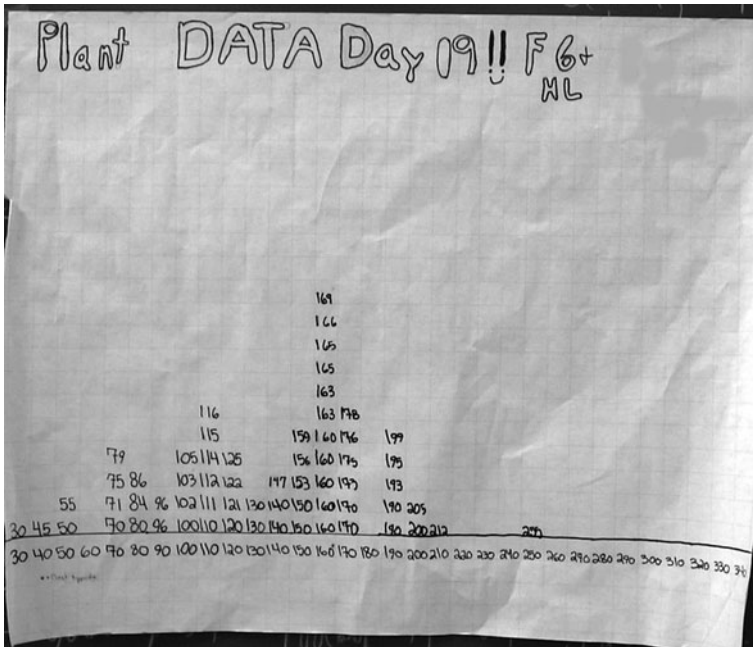 Plant DATA Day 19!! F 6+
ML
169
166
165
165
163
116 163 178
115 159 160 176 199
79 105 114 125 156 160 175 195
75 86 103 112 122 147 153 160 193
55 71 84 96 102 111 121 130 140 150 160 170 190 205
30 45 50 70 80 96 100 110 120 130 140 150 160 170 190 200 212
30 40 50 60 70 80 90 100 110 120 130 140 150 160 170 180 190 200 210 220 230 240 250 260 270 280 290 300 310 320 330 340